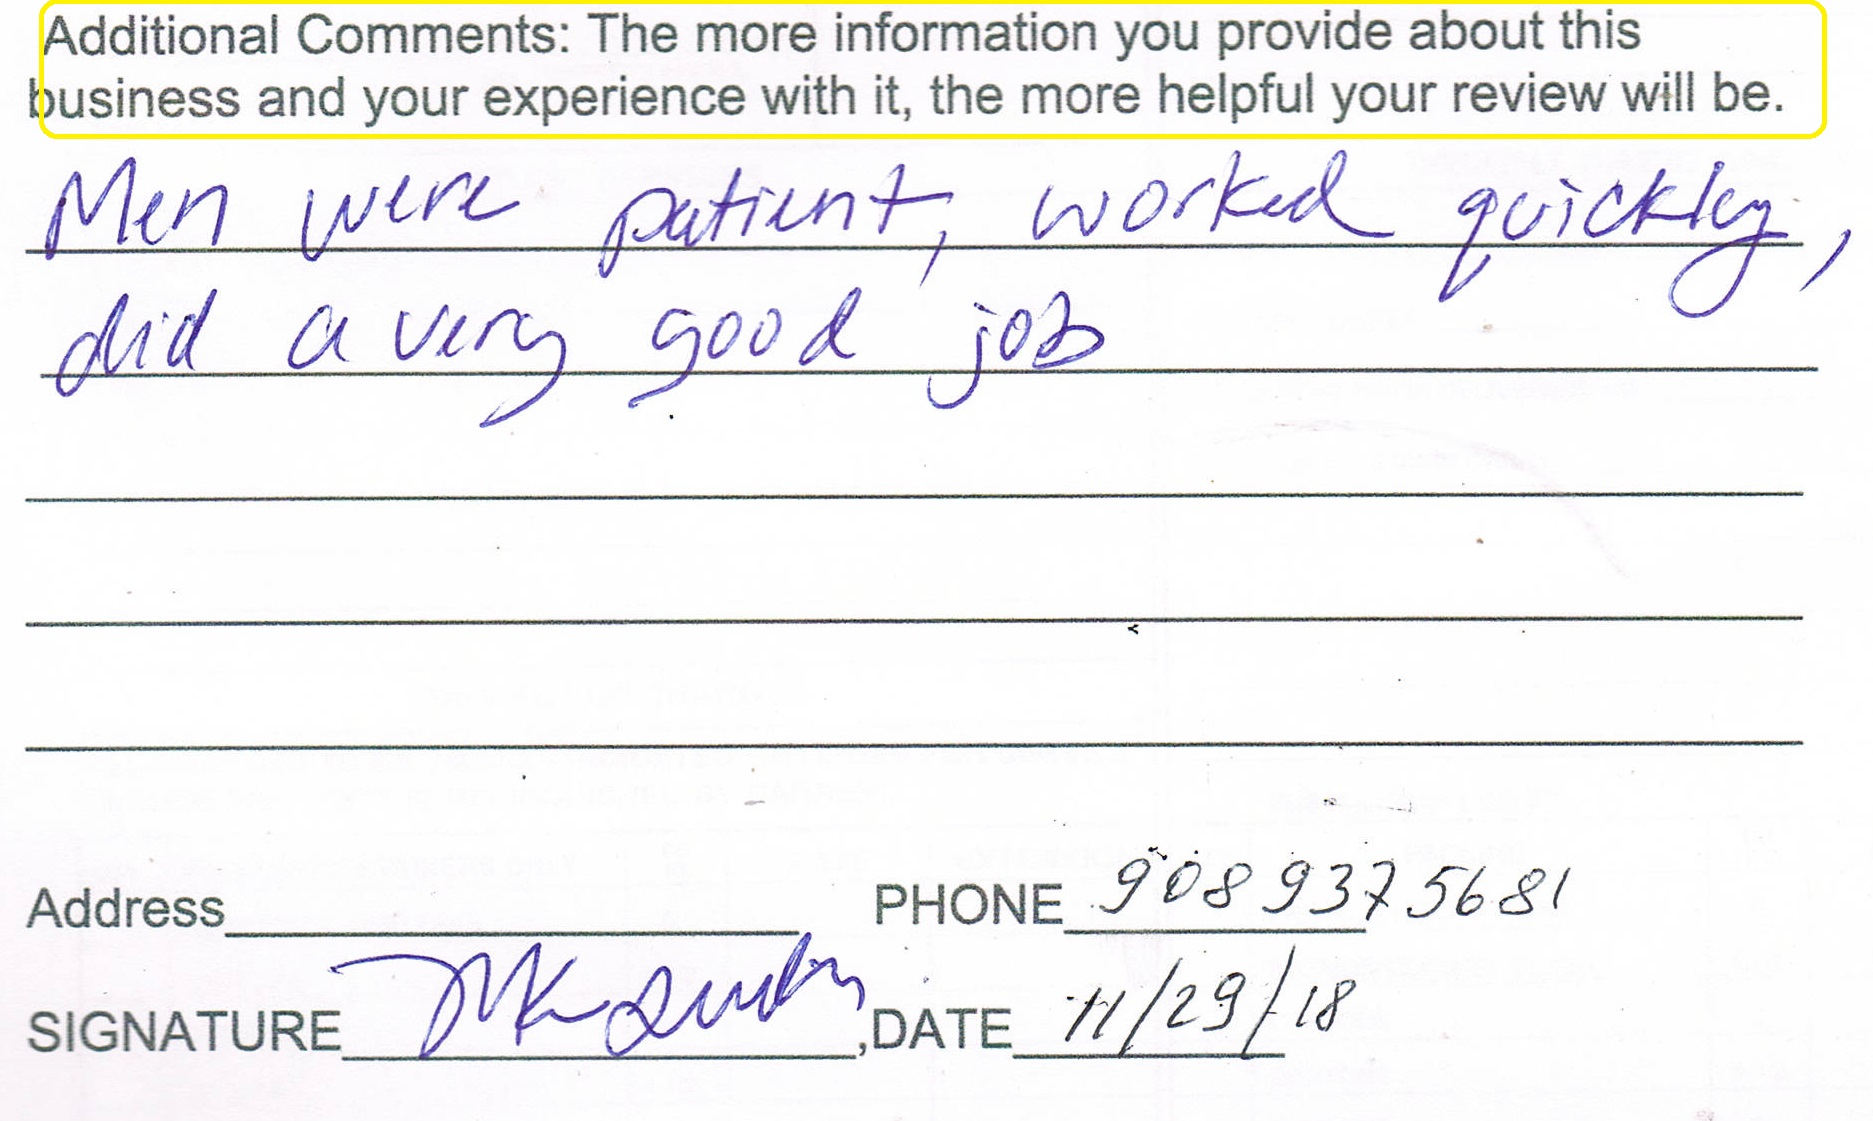 Additional Comments: The more information you provide about this
business and your experience with it, the more helpful your review will be.
Men were patient, worked quickly,
did a very good job
Address PHONE 908 937 5681
SIGNATURE ,DATE 11/29/18